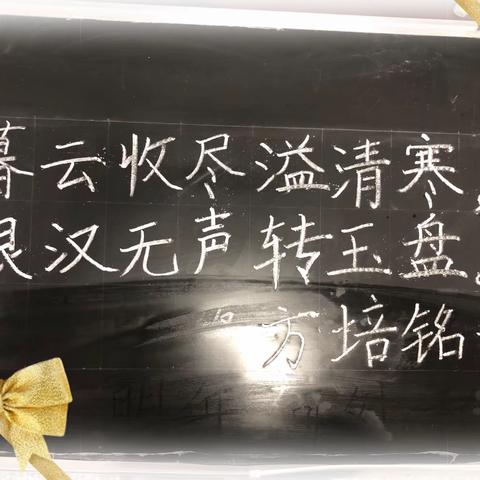 暮云收尽溢清寒
银汉无声转玉盘
方培铭